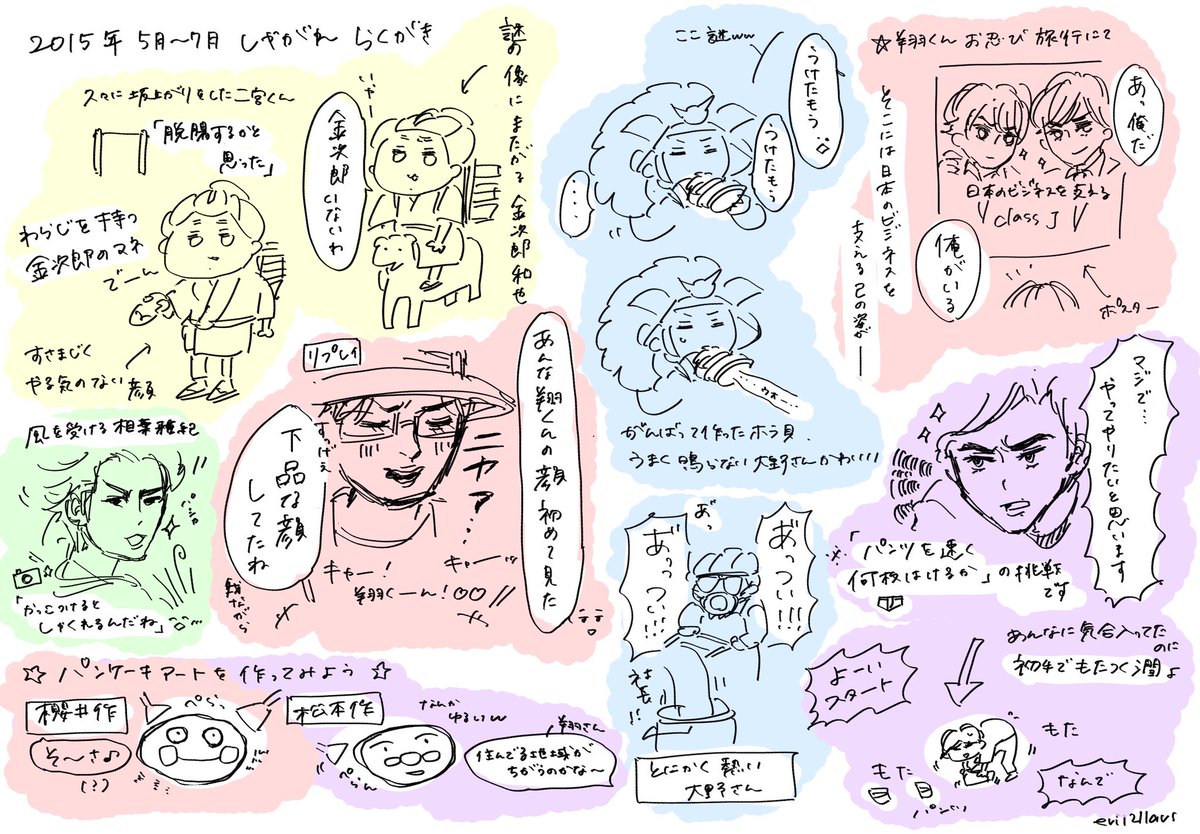 2015年 5月〜7月 しやがれ らくがき
久々に坂上がりをした二宮くん
「脱腸するかと
思った」
わらじを持つ
金次郎のマネ
でーん
すさまじく
やる気のない顔
謎の像にまたがる金次郎和也
いやー
金次郎いないわ
ここ謎ww
うけたもう
うけたもう
・・・・
がんばって作ったホラ貝
うまく鳴らない大野さんかわいい
☆翔くん お忍び旅行にて
あっ俺だ
そこには日本のビジネスを
支える己の姿が――
日本のビジネスを支える
class J
俺がいる
ポスター
風を受ける相葉雅紀
「かっこつけると
しゃくれるんだね」
リプレイ
すっげえ
ニヤァ…
あんな翔くんの顔初めて見た
下品な顔
してたね
キャー!
キャーッ
翔くーん!
あ゛っ
あ゛っつい!!!
あ゛っつい!!!
社長!!
とにかく熱い
大野さん
マジで…
やってやりたいと思います
「パンツを速く
何枚はけるか」の挑戦
です
あんなに気合入ってた
のに
初手でもたつく潤
よーい
スタート
もた
もた
パンツ
なんで
☆ パンケーキアートを作ってみよう ☆
櫻井作
そ〜さ♪
(?)
ぺらっ
松本作
なんか
ゆるいw
ぺらん
翔さん
住んでる地域が
ちがうのかな〜